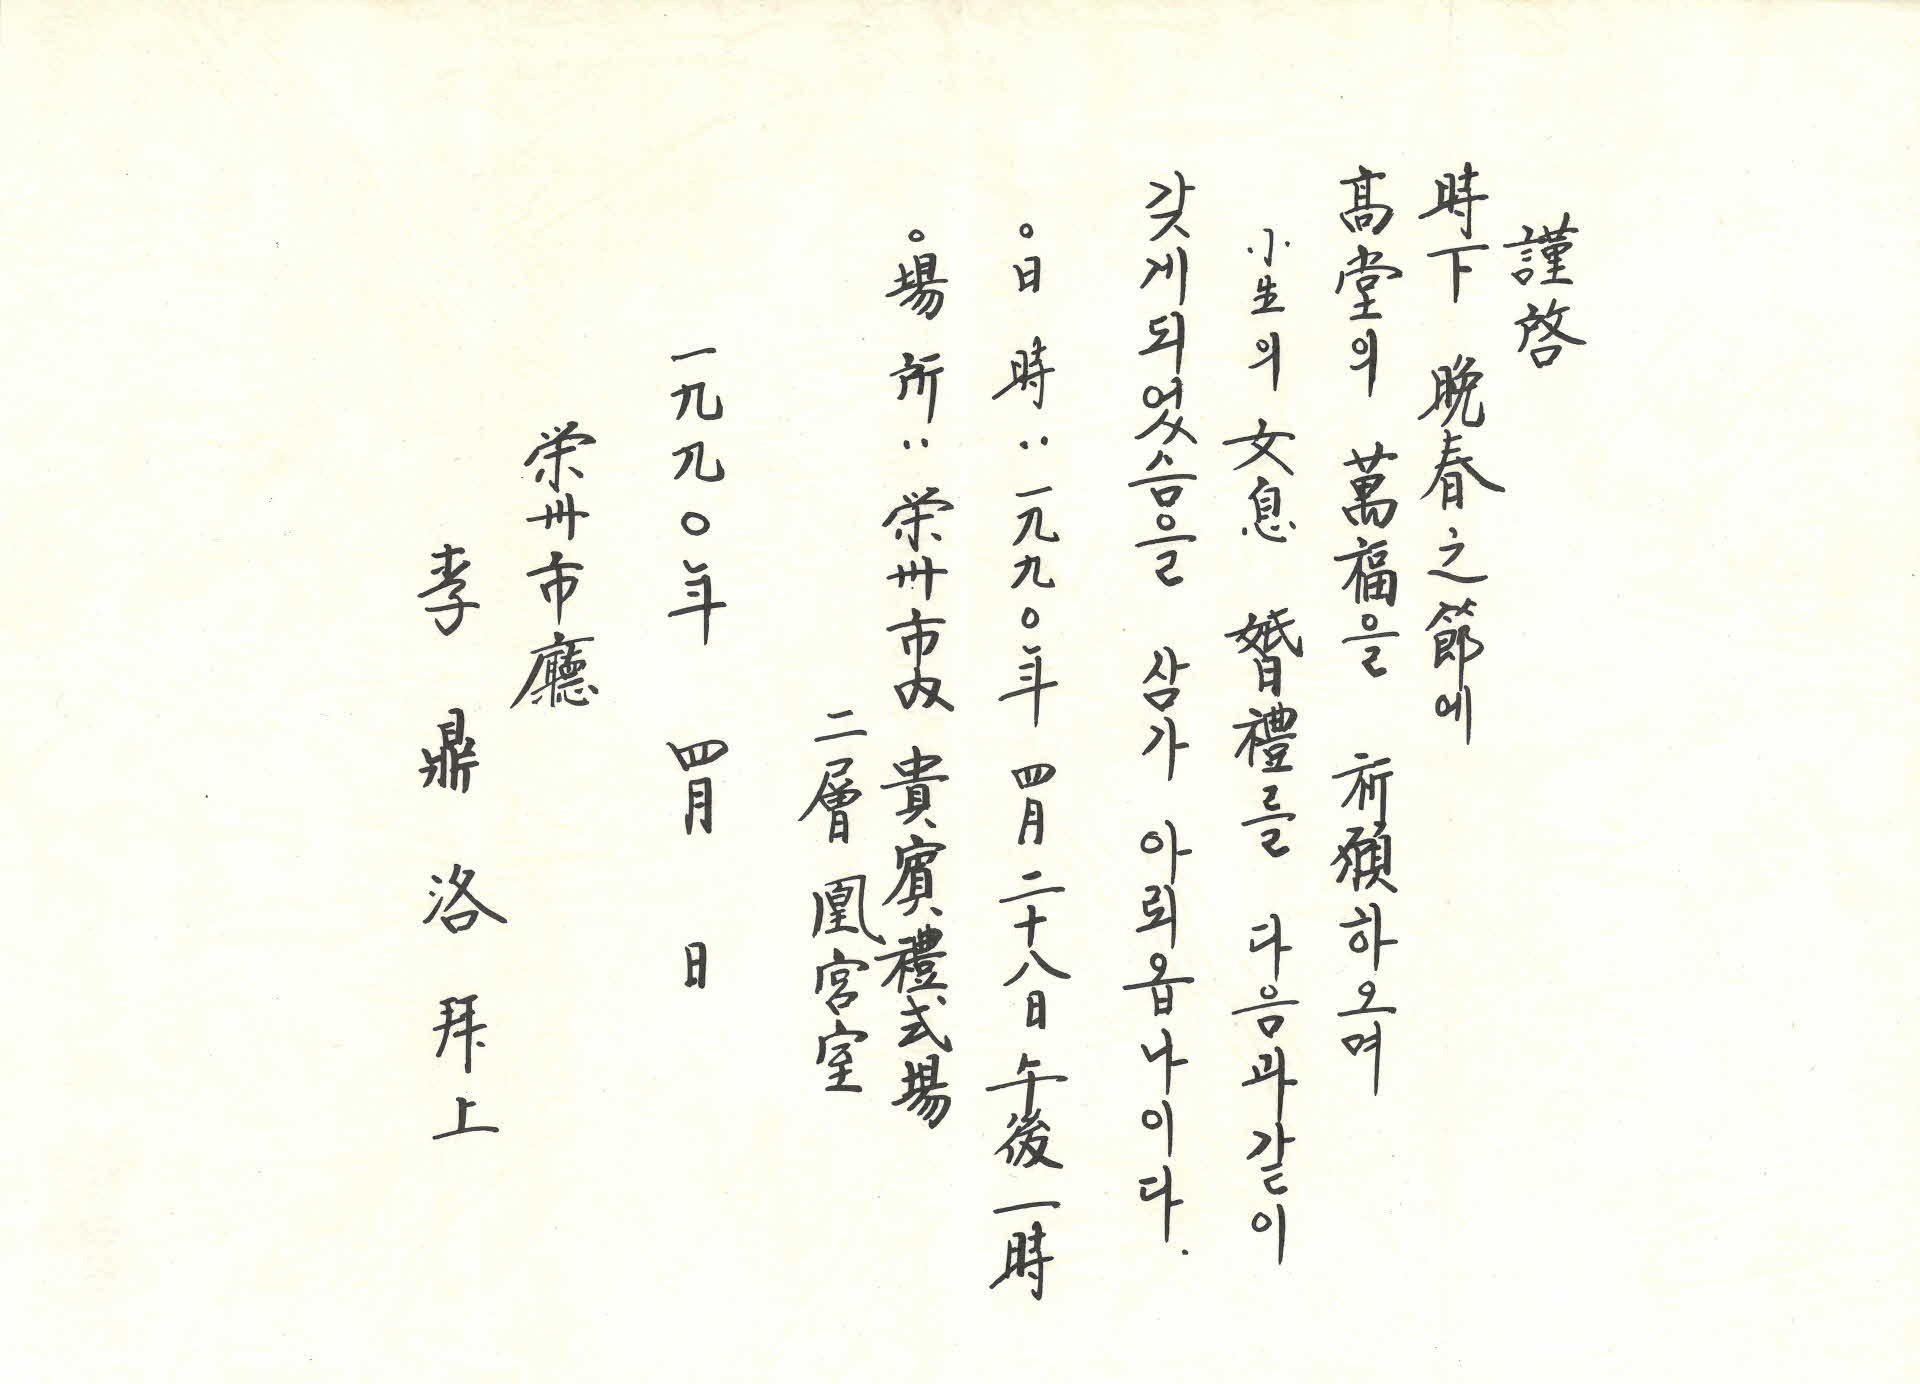 謹啓
時下 晩春之節에
高堂의 萬福을 祈願하오며
小生의 女息 婚禮를 다음과같이
갖게되었슴을 삼가 아뢰옵나이다.
○日 時 : 一九九○年 四月 二十八日 午後 一時
○場 所 : 栄州市内 貴賓禮式場
二層 凰宮室
一九九○年 四月 日
栄州市廳
李 鼎 洛 拜 上